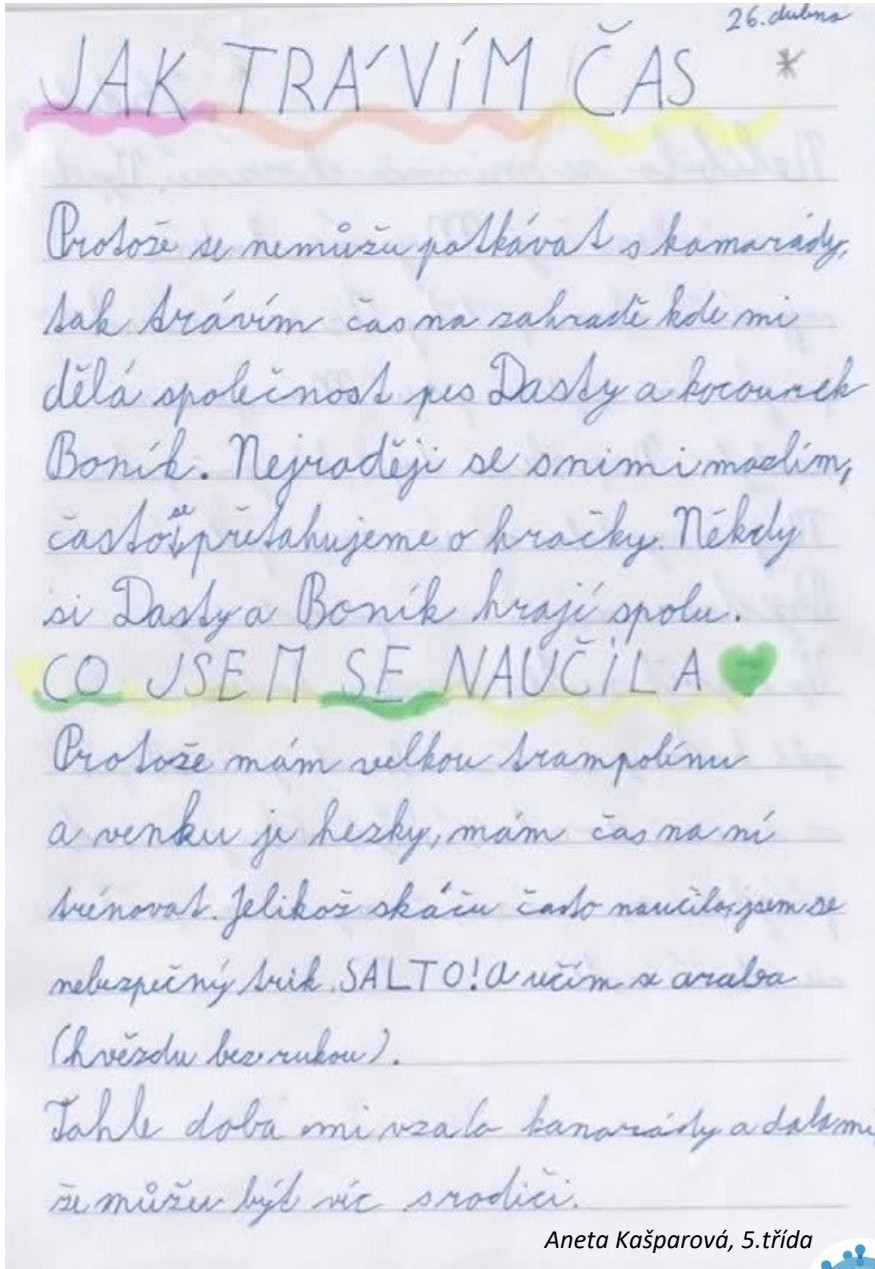 26. dubna
JAK TRÁVÍM ČAS *
Protože se nemůžu potkávat s kamarády,
tak trávím čas na zahradě kde mi
dělá společnost pes Dasty a kocourek
Boník. Nejraději se snimi mazlím,
často se přetahujeme o hračky. Někdy
si Dasty a Boník hrají spolu.
CO JSEM SE NAUČILA
Protože mám velkou trampolínu
a venku je hezky, mám čas na ní
trénovat. Jelikož skáču často naučila jsem se
nebezpečný trik SALTO! A učím se araba
(hvězdu bez rukou).
Tahle doba mi vzala kamarády a dala mi,
že můžu být víc srodiči.
Aneta Kašparová, 5.třída